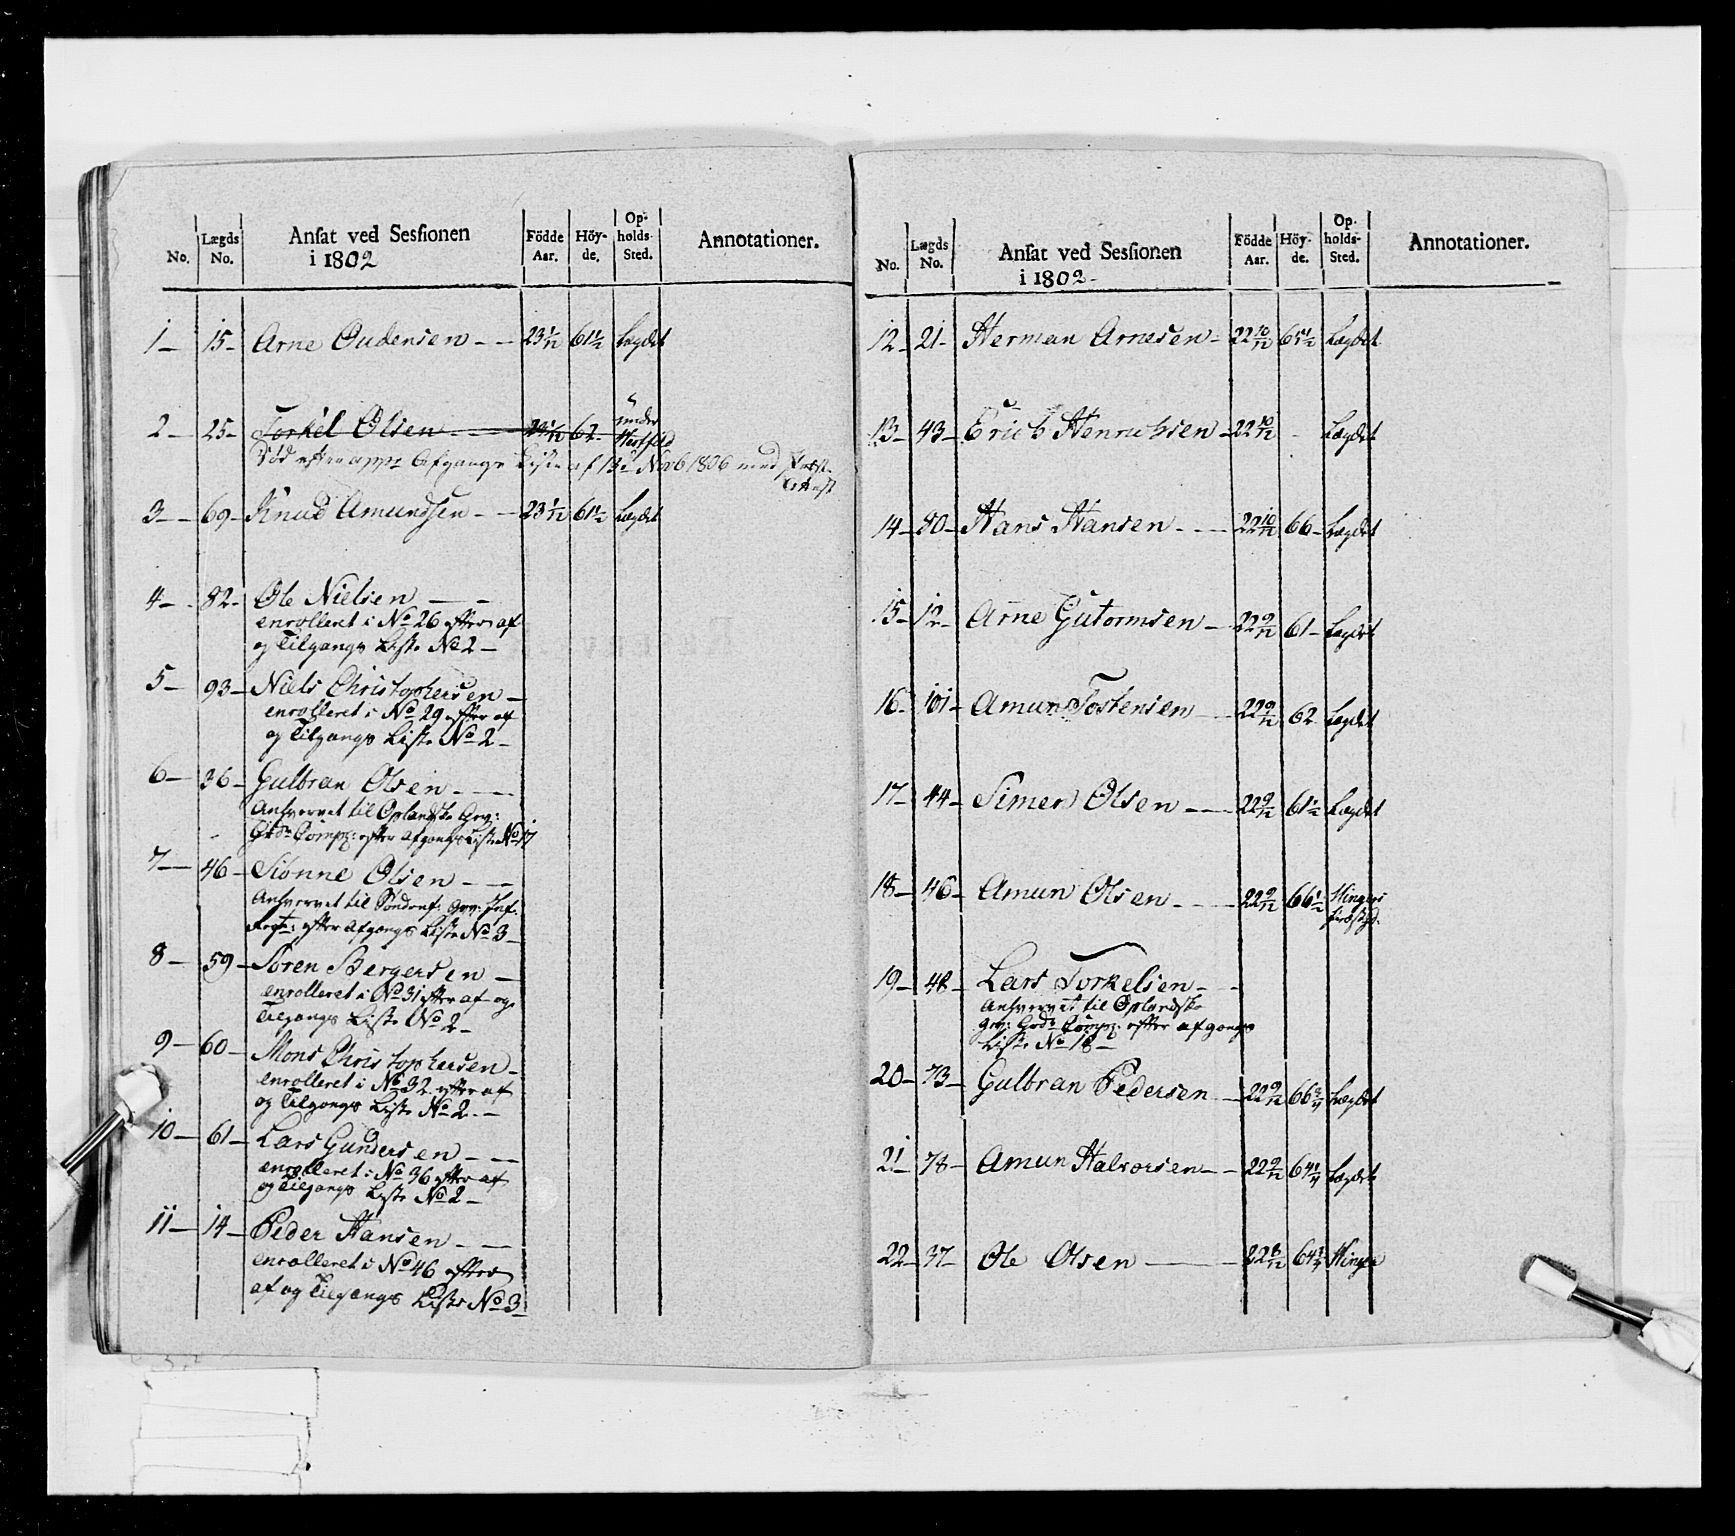 No. Lægds No. Ansat ved Sessionen i 1802 Födde Aar. Höyde. Opholds-Sted. Annotationer.
1 — 15 — Arne Oudensen — — 23 1/12 61 1/2 Lægdet
2 — 25 — Torkel Olsen — — 23 1/12 62 — under
Død efter Afgangs Liste af 13 Novb 1806 med
3 — 69 — Knud Amundsen — — 23 1/12 61 1/2 Lægdet
4 — 82 — Ole Nielsen — —
enrolleret i No 26 efter af
og Tilgangs Liste No 2 —
5 — 93 — Niels Christophersen —
enrolleret i No 29 efter af
og Tilgangs Liste No 2 —
6 — 36 — Gulbran Olsen — —
Anhvervet til Oplandske Gev:
Comp: efter Afgangs Liste No 17
7 — 46 — Sionne Olsen — —
Anhvervet til Søndenf: Gev: Inf.
Regt: efter Afgangs Liste No 3 —
8 — 59 — Søren Bergersen —
enrolleret i No 31 efter af og
Tilgangs Liste No 2 —
9 — 60 — Mons Christophersen —
enrolleret i No 32 efter af
og Tilgangs Liste No 2 —
10 — 61 — Lars Gundersen — —
enrolleret i No 36 efter af
og Tilgangs Liste No 2 —
11 — 14 — Peder Hansen — —
enrolleret i No 46 efter
af og Tilgangs Liste No 3 —
No. Lægds No. Ansat ved Sessionen i 1802 — Födde Aar. Höyde. Opholds-Sted. Annotationer.
12 — 21 — Herman Arnesen — 22 10/12 65 1/2 Lægdet
13 — 43 — Erich Henrichsen — 22 10/12 — Lægdet
14 — 80 — Hans Hansen — — 22 10/12 66 — Lægdet
15 — 12 — Arne Gutormsen — 22 9/12 61 — Lægdet
16 — 101 — Amun Tostensen — 22 9/12 62 Lægdet
17 — 44 — Simen Olsen — — 22 9/12 61 1/2 Lægdet
18 — 46 — Amun Olsen — — 22 9/12 66 1/2 Hingers
19 — 48 — Lars Torkelsen — —
Anhvervet til Oplandske
Gev: Comp: efter afgangs
Liste No 18 —
20 — 73 — Gulbran Pedersen — 22 9/12 66 3/4 Lægdet
21 — 78 — Amun Halvorsen — 22 9/12 64 1/4 Lægdet
22 — 37 — Ole Olsen — — 22 8/12 64 3/4